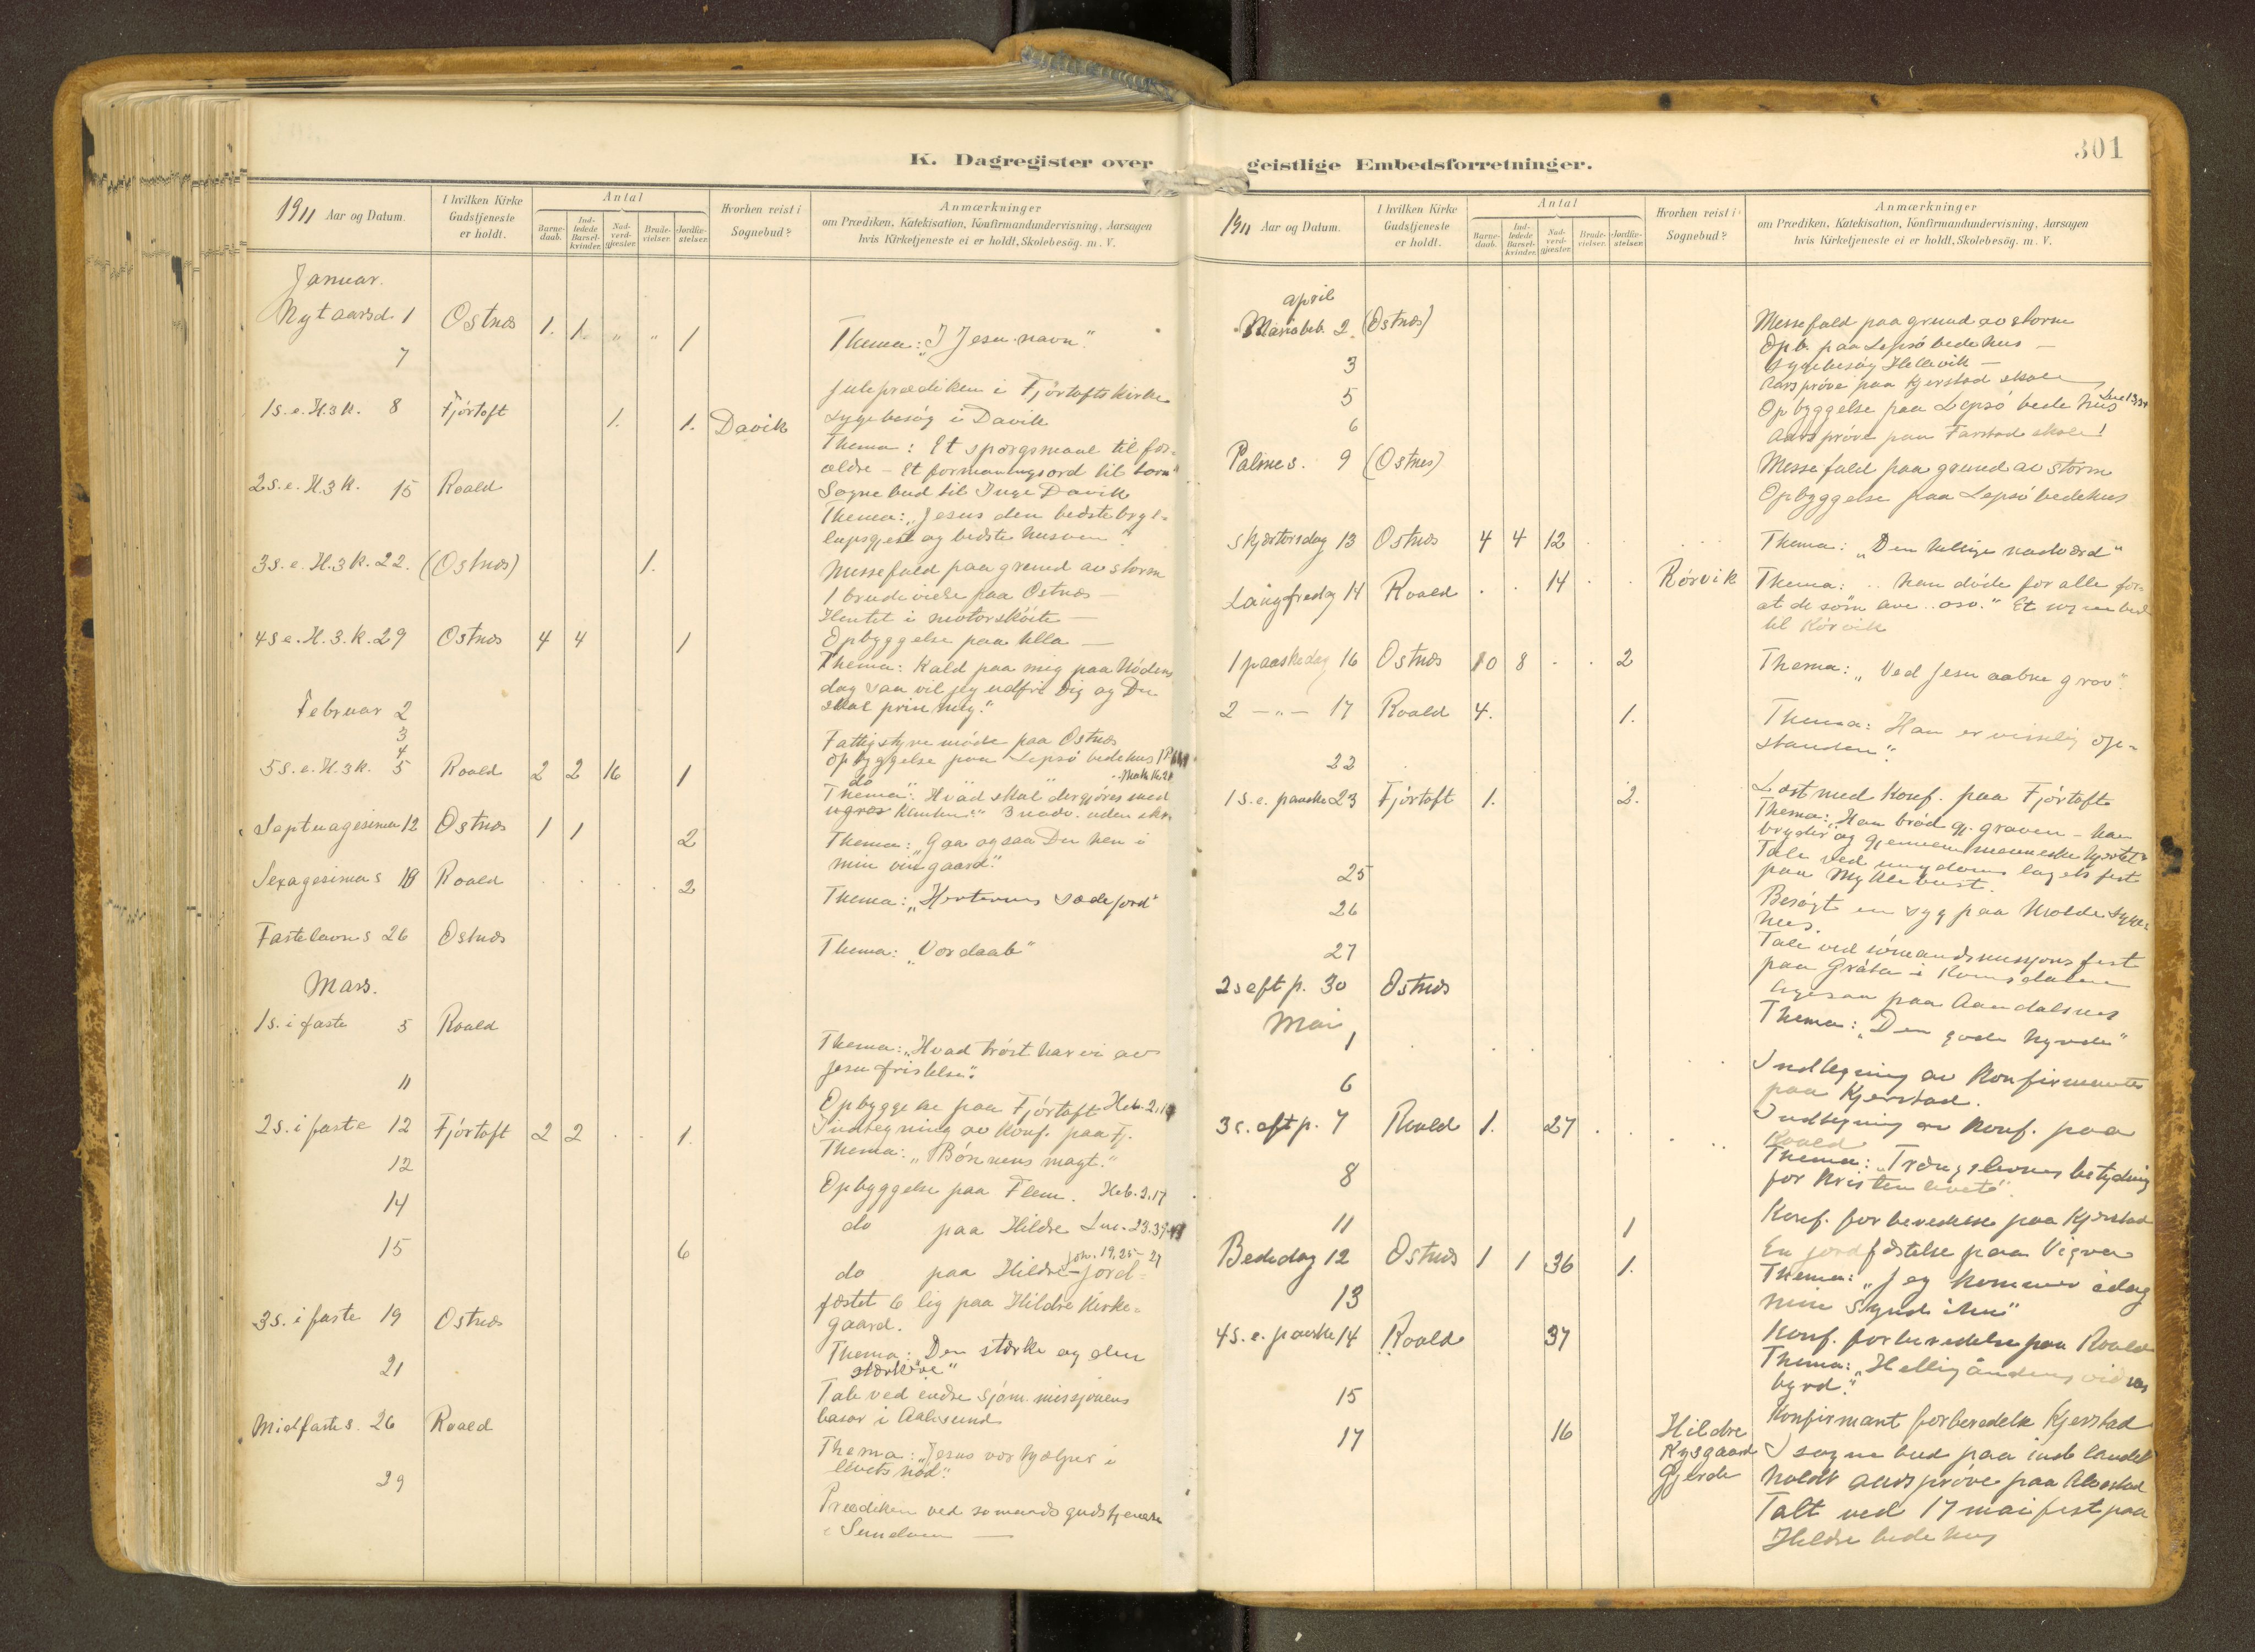 K. Dagregister over
1911 Aar og Datum.
I hvilken Kirke Gudstjeneste er holdt.
Antal
Barne-daab.
Ind-ledede Barsel-kvinder.
Nad-verd-gjæster.
Brude-vielser.
Jordfæ-stelser.
Hvorhen reist i Sognebud?
Anmærkninger
om Prædiken, Katekisation, Konfirmandundervisning, Aarsagen
hvis Kirketjeneste ei er holdt, Skolebesög. m. V.
Januar.
Nytaarsd. 1 Ostnæs 1. 1. „ „ 1 Thema: „I Jesu navn."
7 Juleprædiken i Fjörtofts kirke
Sygebesög i Davik
1 s. e. H. 3 k. 8 Fjörtoft 1. 1. Davik Thema: Et spörgsmaal til for-
ældre – Et formaningsord til barn"
Sognebud til Inge Davik
2 s. e. H. 3 k. 15 Roald Thema: „Jesus den bedste bryl-
lupsgjest og bedste husven"
3 s. e. H. 3 k. 22. (Ostnæs) 1. Messefald paa grund av storm
1 brudevielse paa Ostnæs –
Hentet i motorsköite –
Opbyggelse paa Ulla –
4 s. e. H. 3. k. 29 Ostnæs 4 4 1 Thema: Kald paa mig paa Nödens
dag saa vil jeg udfri Dig og Du
skal prise mig."
Februar 2 Fattigstyremöde paa Ostnæs
3 Opbyggelse paa Lepsö bedehus
4 do
5 s. e. H. 3 k. 5 Roald 2 2 16 1 Thema: Hvad skal der gjöres med
ugræs Klinten?" 3 nadv. uden skr.
Septuagesima 12 Ostnæs 1 1 2 Thema: „Gaa ogsaa Du hen i
min vingaard."
Sexagesima s 18 Roald 2 Thema: „Herternes sædejord"
Fastelavns 26 Ostnæs Thema: „Vor daab"
Mars.
1 s. i faste 5 Roald Thema: „Hvad tröst har vi av
Jesu fristelse."
11 Opbyggelse paa Fjörtoft Heb. 2,17
Indtegning av Konf. paa Fj.
2 s. i faste 12 Fjörtoft 2 2 1. Thema: „Bönnens magt."
12 Opbyggelse paa Flem. Heb. 2,17
14 do paa Hildre Luc. 23.39-43
15 6 do paa Hildre Joh. 19,25-27 – Jord-
fæstet 6 lig paa Hildre Kirke-
gaard.
3 s. i faste 19 Ostnæs Thema: Den stærke og den
stærkere"
21 Tale ved indre sjöm. missjonens
basar i Aalesund
Midfaste s. 26 Roald Thema: „Jesus vor hjælper i
livets nöd."
29 Prædiken ved sömands gudstjeneste

geistlige Embedsforretninger.
301
1911 Aar og Datum.
I hvilken Kirke Gudstjeneste er holdt.
Antal
Barne-daab.
Ind-ledede Barsel-kvinder.
Nad-verd-gjæster.
Brude-vielser.
Jordfæ-stelser.
Hvorhen reist i Sognebud?
Anmærkninger
om Prædiken, Katekisation, Konfirmandundervisning, Aarsagen
hvis Kirketjeneste ei er holdt, Skolebesög. m. V.
april
Mariabeb. 2. (Ostnæs) Messefald paa grund av storm
Opb. paa Lepsö bedehus –
Sygebesög Hellevik –
3 Aarspröve paa Kjerstad skole
5 Opbyggelse paa Lepsö bedehus
6 Aarspröve paa Farstad skole!
Palmes. 9 (Ostnes) Messefald paa grund av storm
Opbyggelse paa Lepsö bedehus
Skjærtorsdag 13 Ostnæs 4 4 12 Thema: „Den hellige nadværd"
Langfredag 14 Roald 14 Rörvik Thema: .. han döde for alle for-
at de som .. osv." Et sognebud
til Rörvik
1 paaskedag 16 Ostnæs 10 8 2 Thema: „Ved Jesu aabne grav."
2 – „ – 17 Roald 4. 1. Thema: Han er visselig op-
standen".
22 Læst med Konf. paa Fjörtoft
1 s. e. paaske 23 Fjörtoft 1. 2. Thema: „Han bröd gj. graven – han
bryder og gjennem menneskehjertet"
Tale ved ungdomslagets fest
paa Myklebust.
25 Besögt en syg paa Molde Syge-
hus.
26 Tale ved sömandsmissjons fest
paa Gröta i Romsdalen
27 ligesaa paa Aandalsnes
2 s eft p. 30 Ostnæs Thema: „Den gode hyrde"
Mai
1 Indtegning av Konfirmanter
paa Kjerstad.
6 Indtegning av Konf. paa
Roald
3 s. eft p. 7 Roald 1. 27 Thema: „Trængslernes betydning
for kristenlivet".
8 Konf. forberedelse paa Kjerstad
11 1 En jordfæstelse paa Vigra
Bededag 12 Ostnæs 1 1 36 1. Thema: „Jeg kommer idag
min synd ihu"
13 Konf. forberedelse paa Roald
4 s. e. paaske 14 Roald 37 Thema: „Helligåndens vidnes
byrd."
15 Konfirmant forberedelse Kjerstad
17 16 Hildre
Rysgaard
Gjerde
3 sognebud paa indlandet
holdt aarspröve paa Alvestad
Talt ved 17 mai fest paa
Hildre bedehus